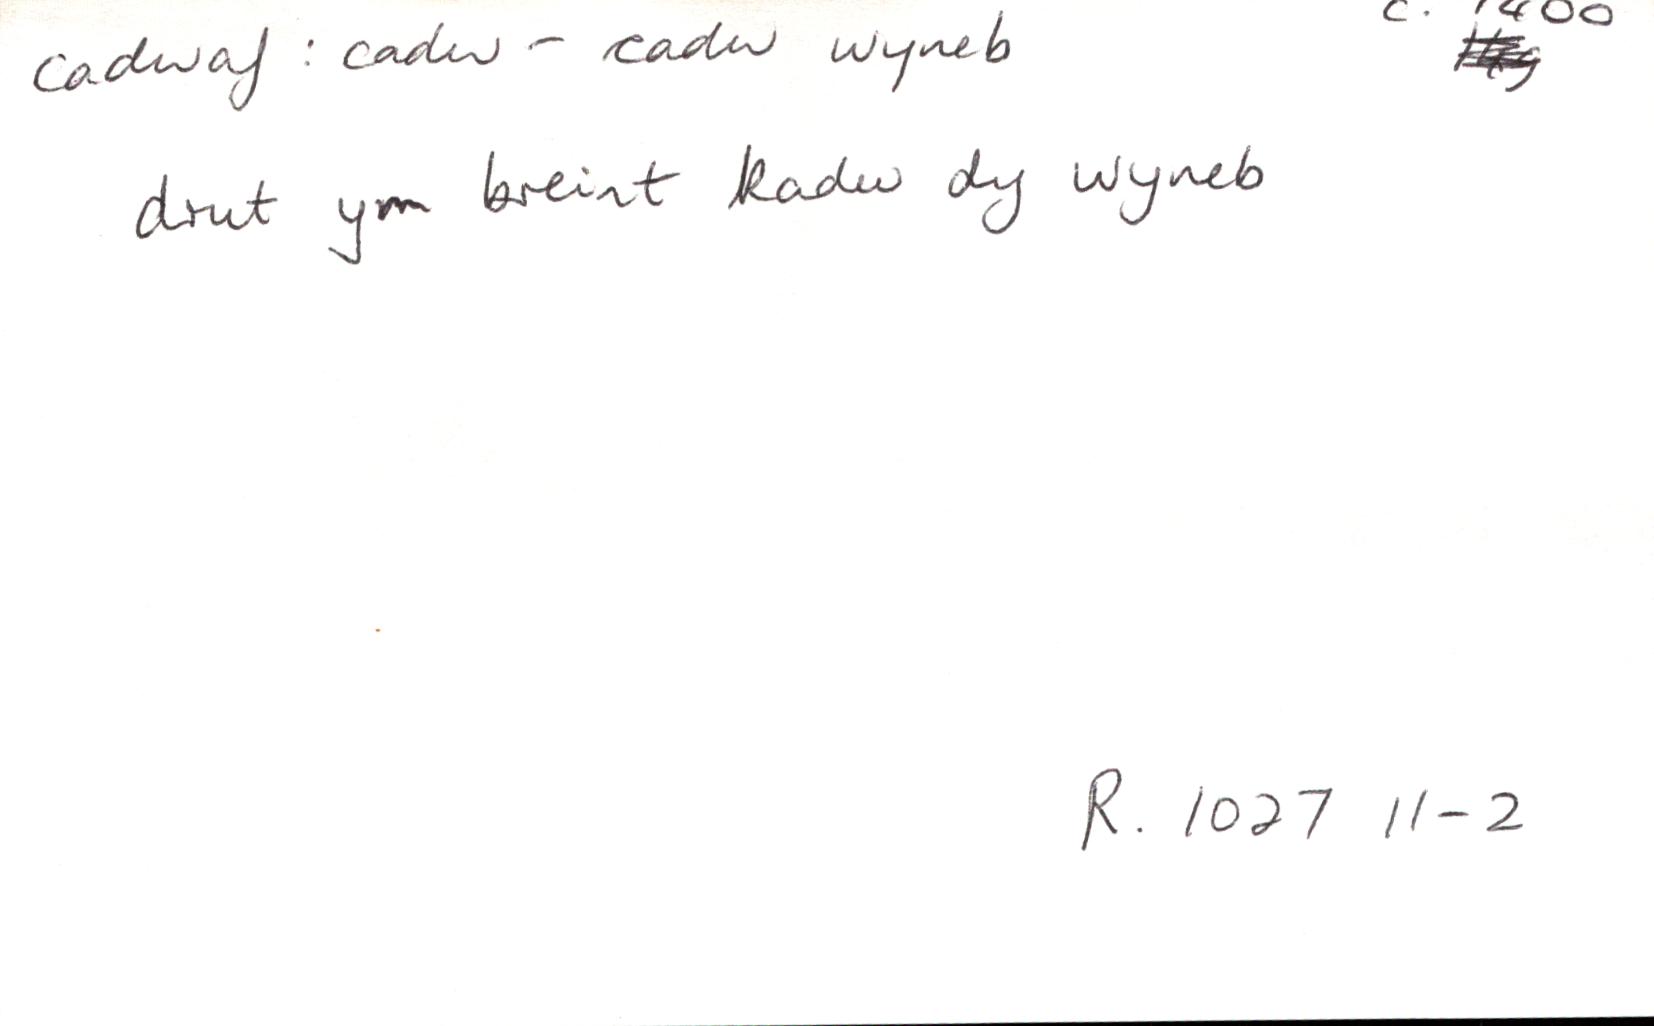 cadwaf : cadw - cadw wyneb
c. 1400
drut ym breint kadw dy wyneb
R. 1027 11-2